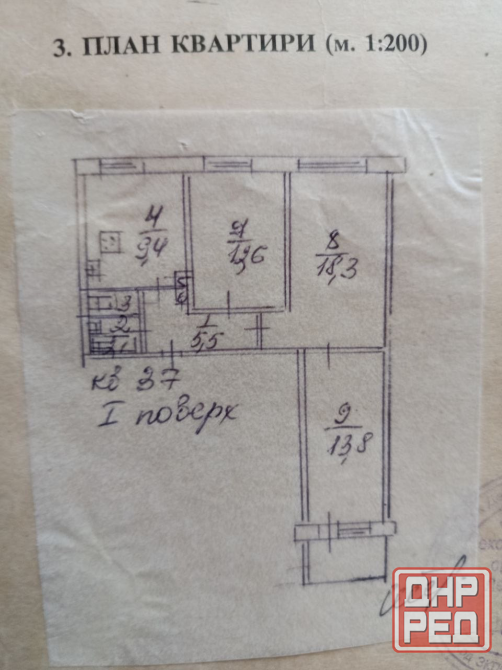 3. ПЛАН КВАРТИРИ (м. 1:200)
4
9,4
7
8
18,3
3
2
1
5,5
кв 37
I поверх
9
13,8
ДНР
РЕД